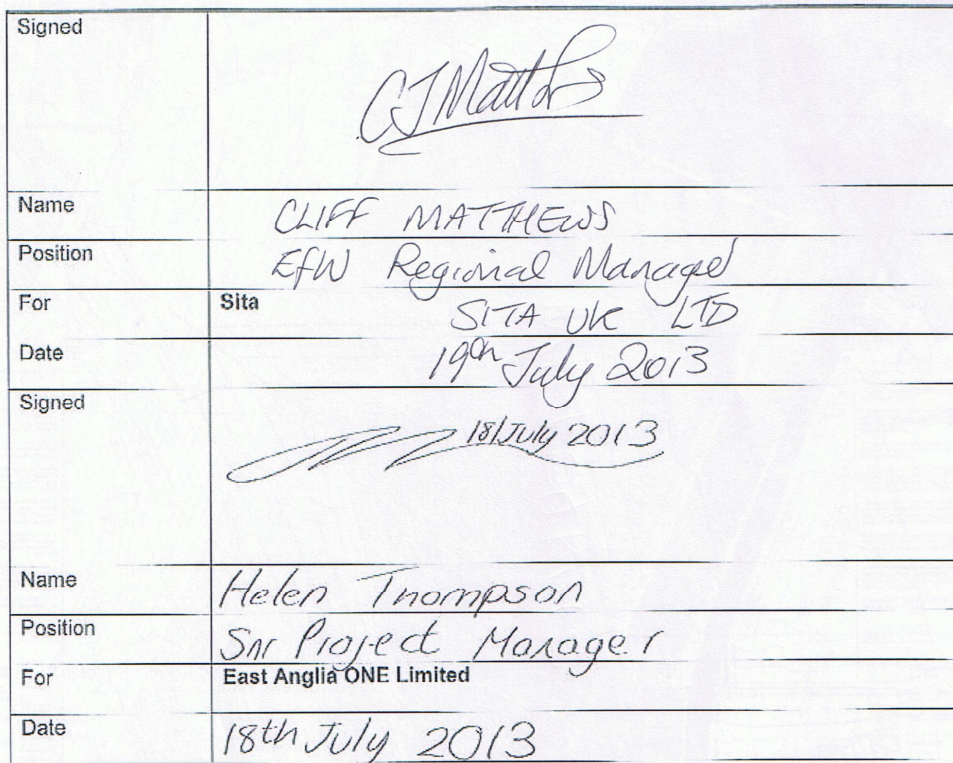 Signed
CJ Matthews
Name CLIFF MATTHEWS
Position EfW Regional Manager
For Sita SITA UK LTD
Date 19th July 2013
Signed
18/July 2013
Name Helen Thompson
Position Snr Project Manager
For East Anglia ONE Limited
Date 18th July 2013